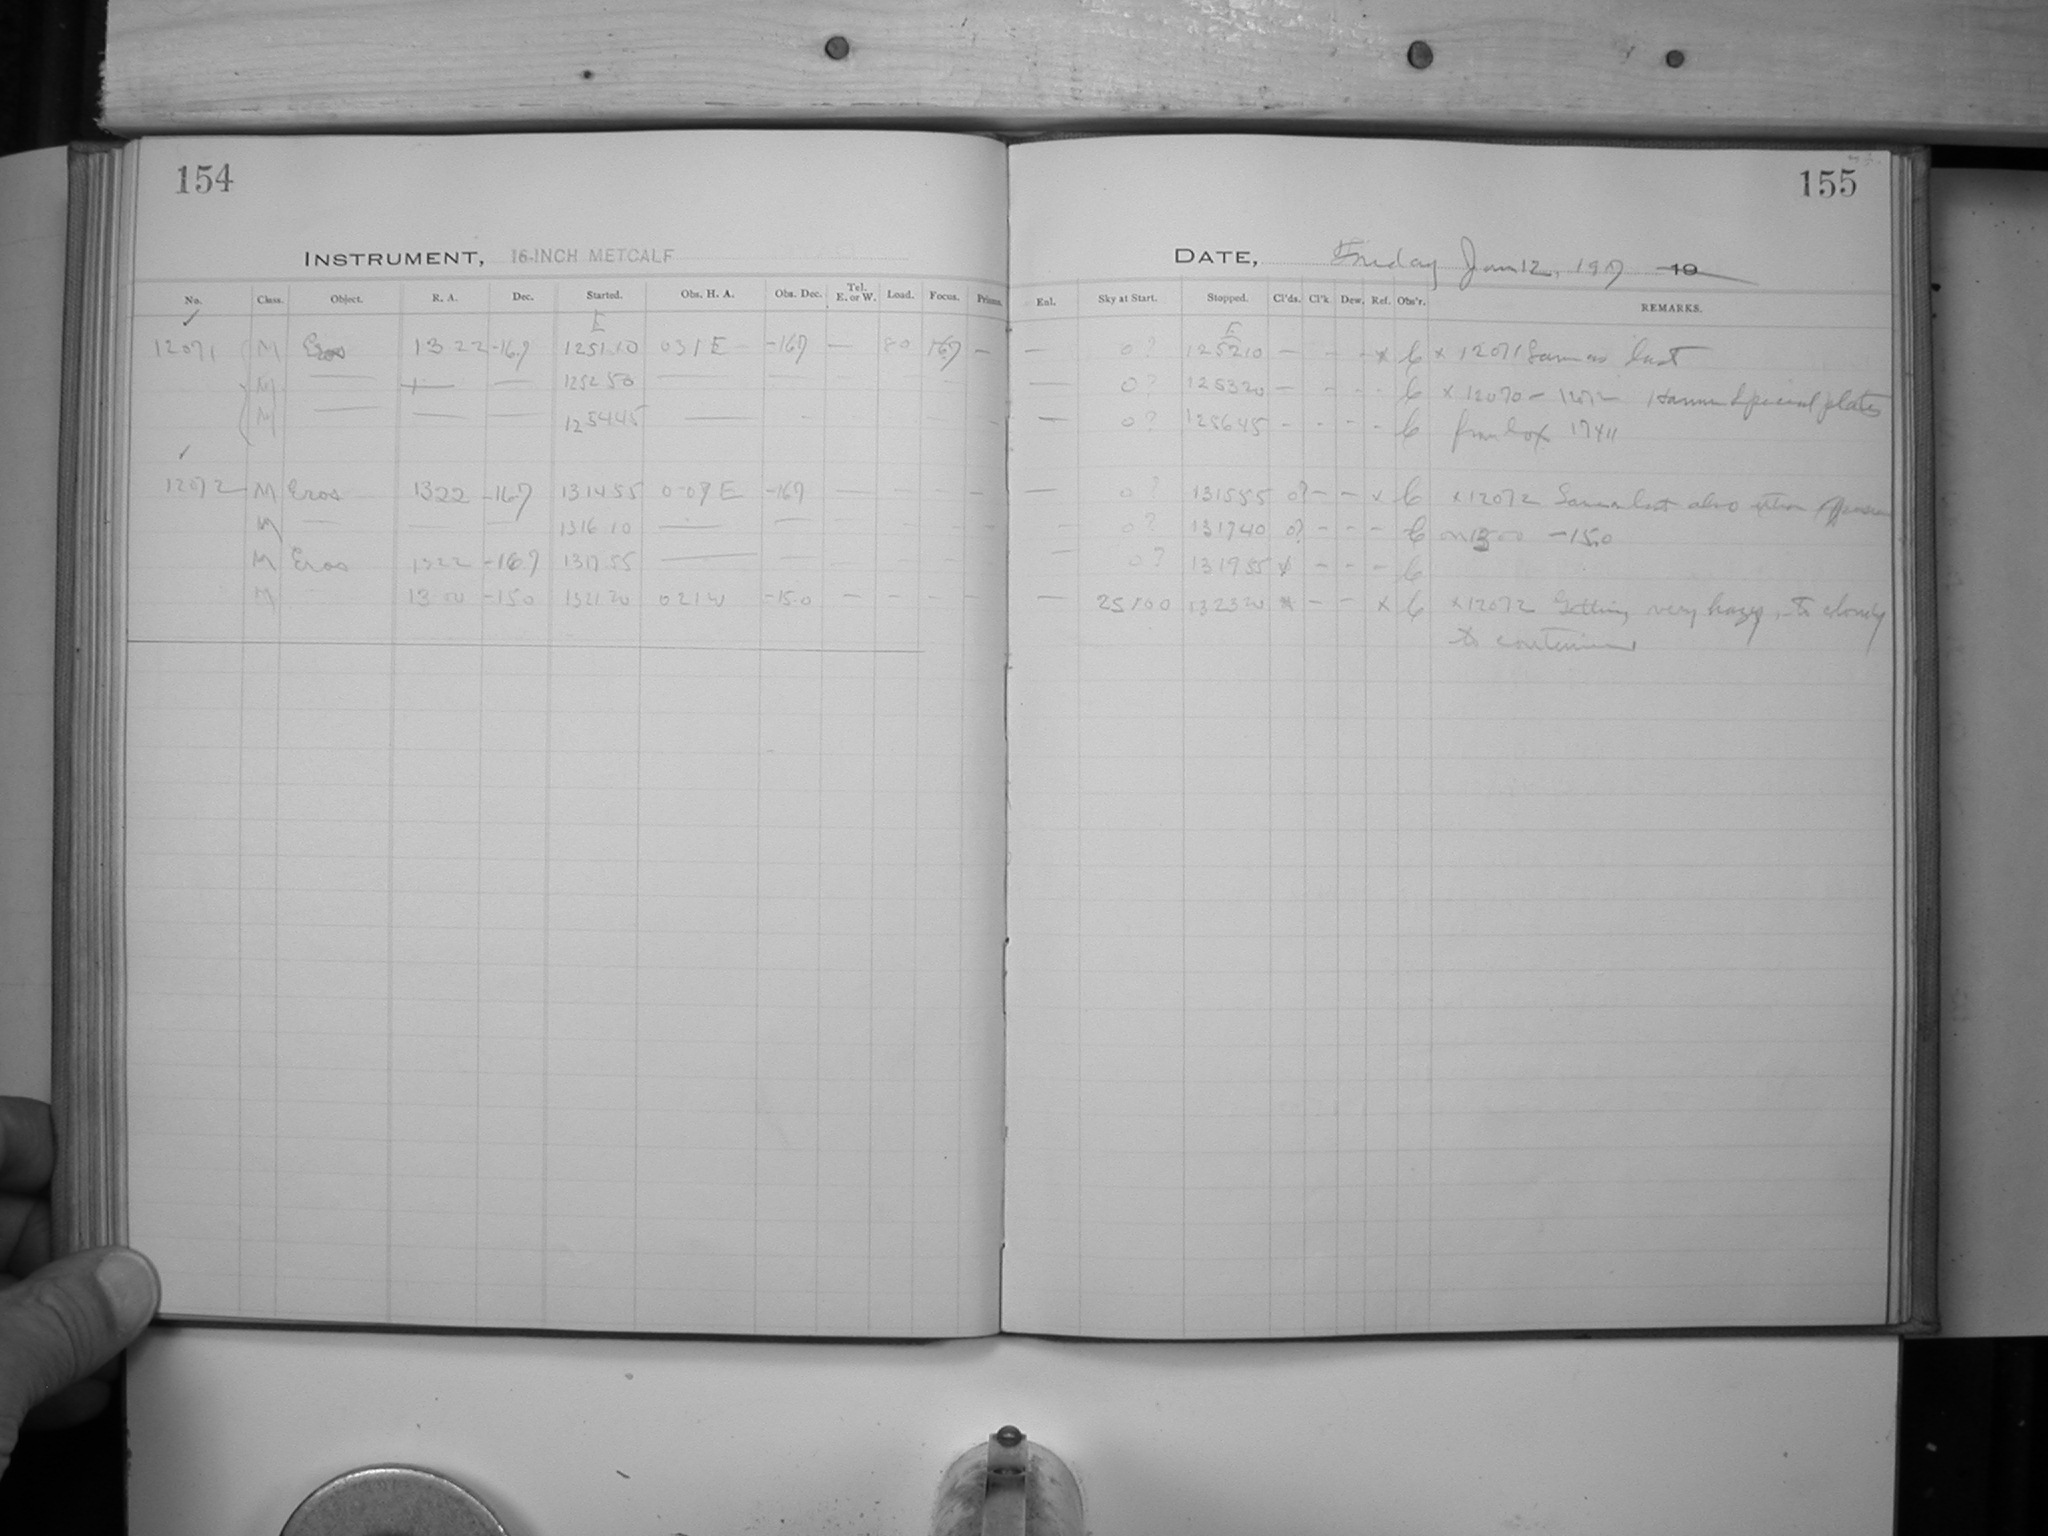 154
INSTRUMENT, 16-INCH METCALF
No. Class. Object. R. A. Dec. Started. Obs. H. A. Obs. Dec. Tel. E. or W. Load. Focus. Prisms.
E
12071 M Eros 13 22 -16.7 12 51 10 0 31 E -16.7 — 80 16.7 —
M — — — 12 52 50 — —
M — — — 12 54 45 — —
12072 M Eros 13 22 -16.7 13 14 55 0-09 E -16.7 — — — —
M — — — 13 16 10 — —
M Eros 13 22 -16.7 13 17 55 —
M 13 00 -15.0 13 21 20 0 21 W -15.0 — — — —
155
DATE, Friday Jan 12, 1917 19
Enl. Sky at Start. Stopped. Cl'ds. Cl'k Dew. Ref. Obs'r. REMARKS.
E
— 0? 12 52 10 — - - x C x 12071 Same as last
— 0? 12 53 20 — - - - C x 12070 - 12072 Hammer Special plates
— 0? 12 56 45 - - - - C from box 17 x 11
— 0? 13 15 55 0? - - x C x 12072 Same as last also extra
— 0? 13 17 40 0? - - - C on 13 00 -15.0
— 0? 13 19 55 x - - - C
— 25100 13 23 20 x - - x C x 12072 Getting very hazy, to cloudy
to continue